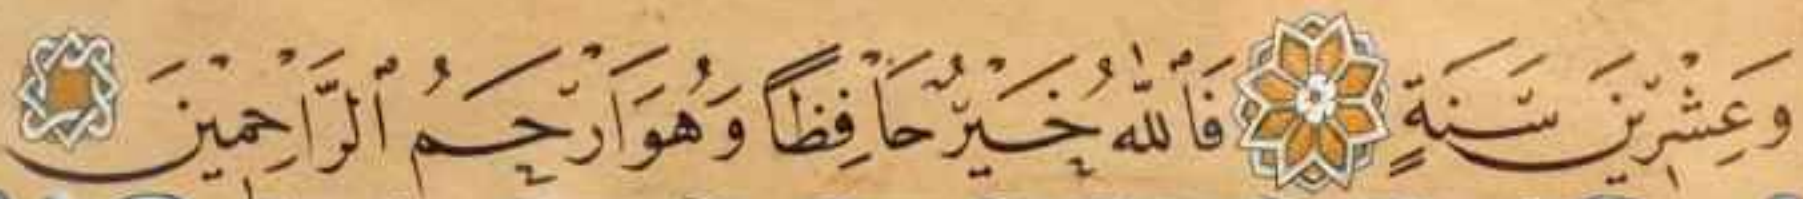 وَعِشْرِينَ سَنَةٍ فَٱللَّهُ خَيْرٌ حَافِظًا وَهُوَ أَرْحَمُ ٱلرَّاحِمِينَ